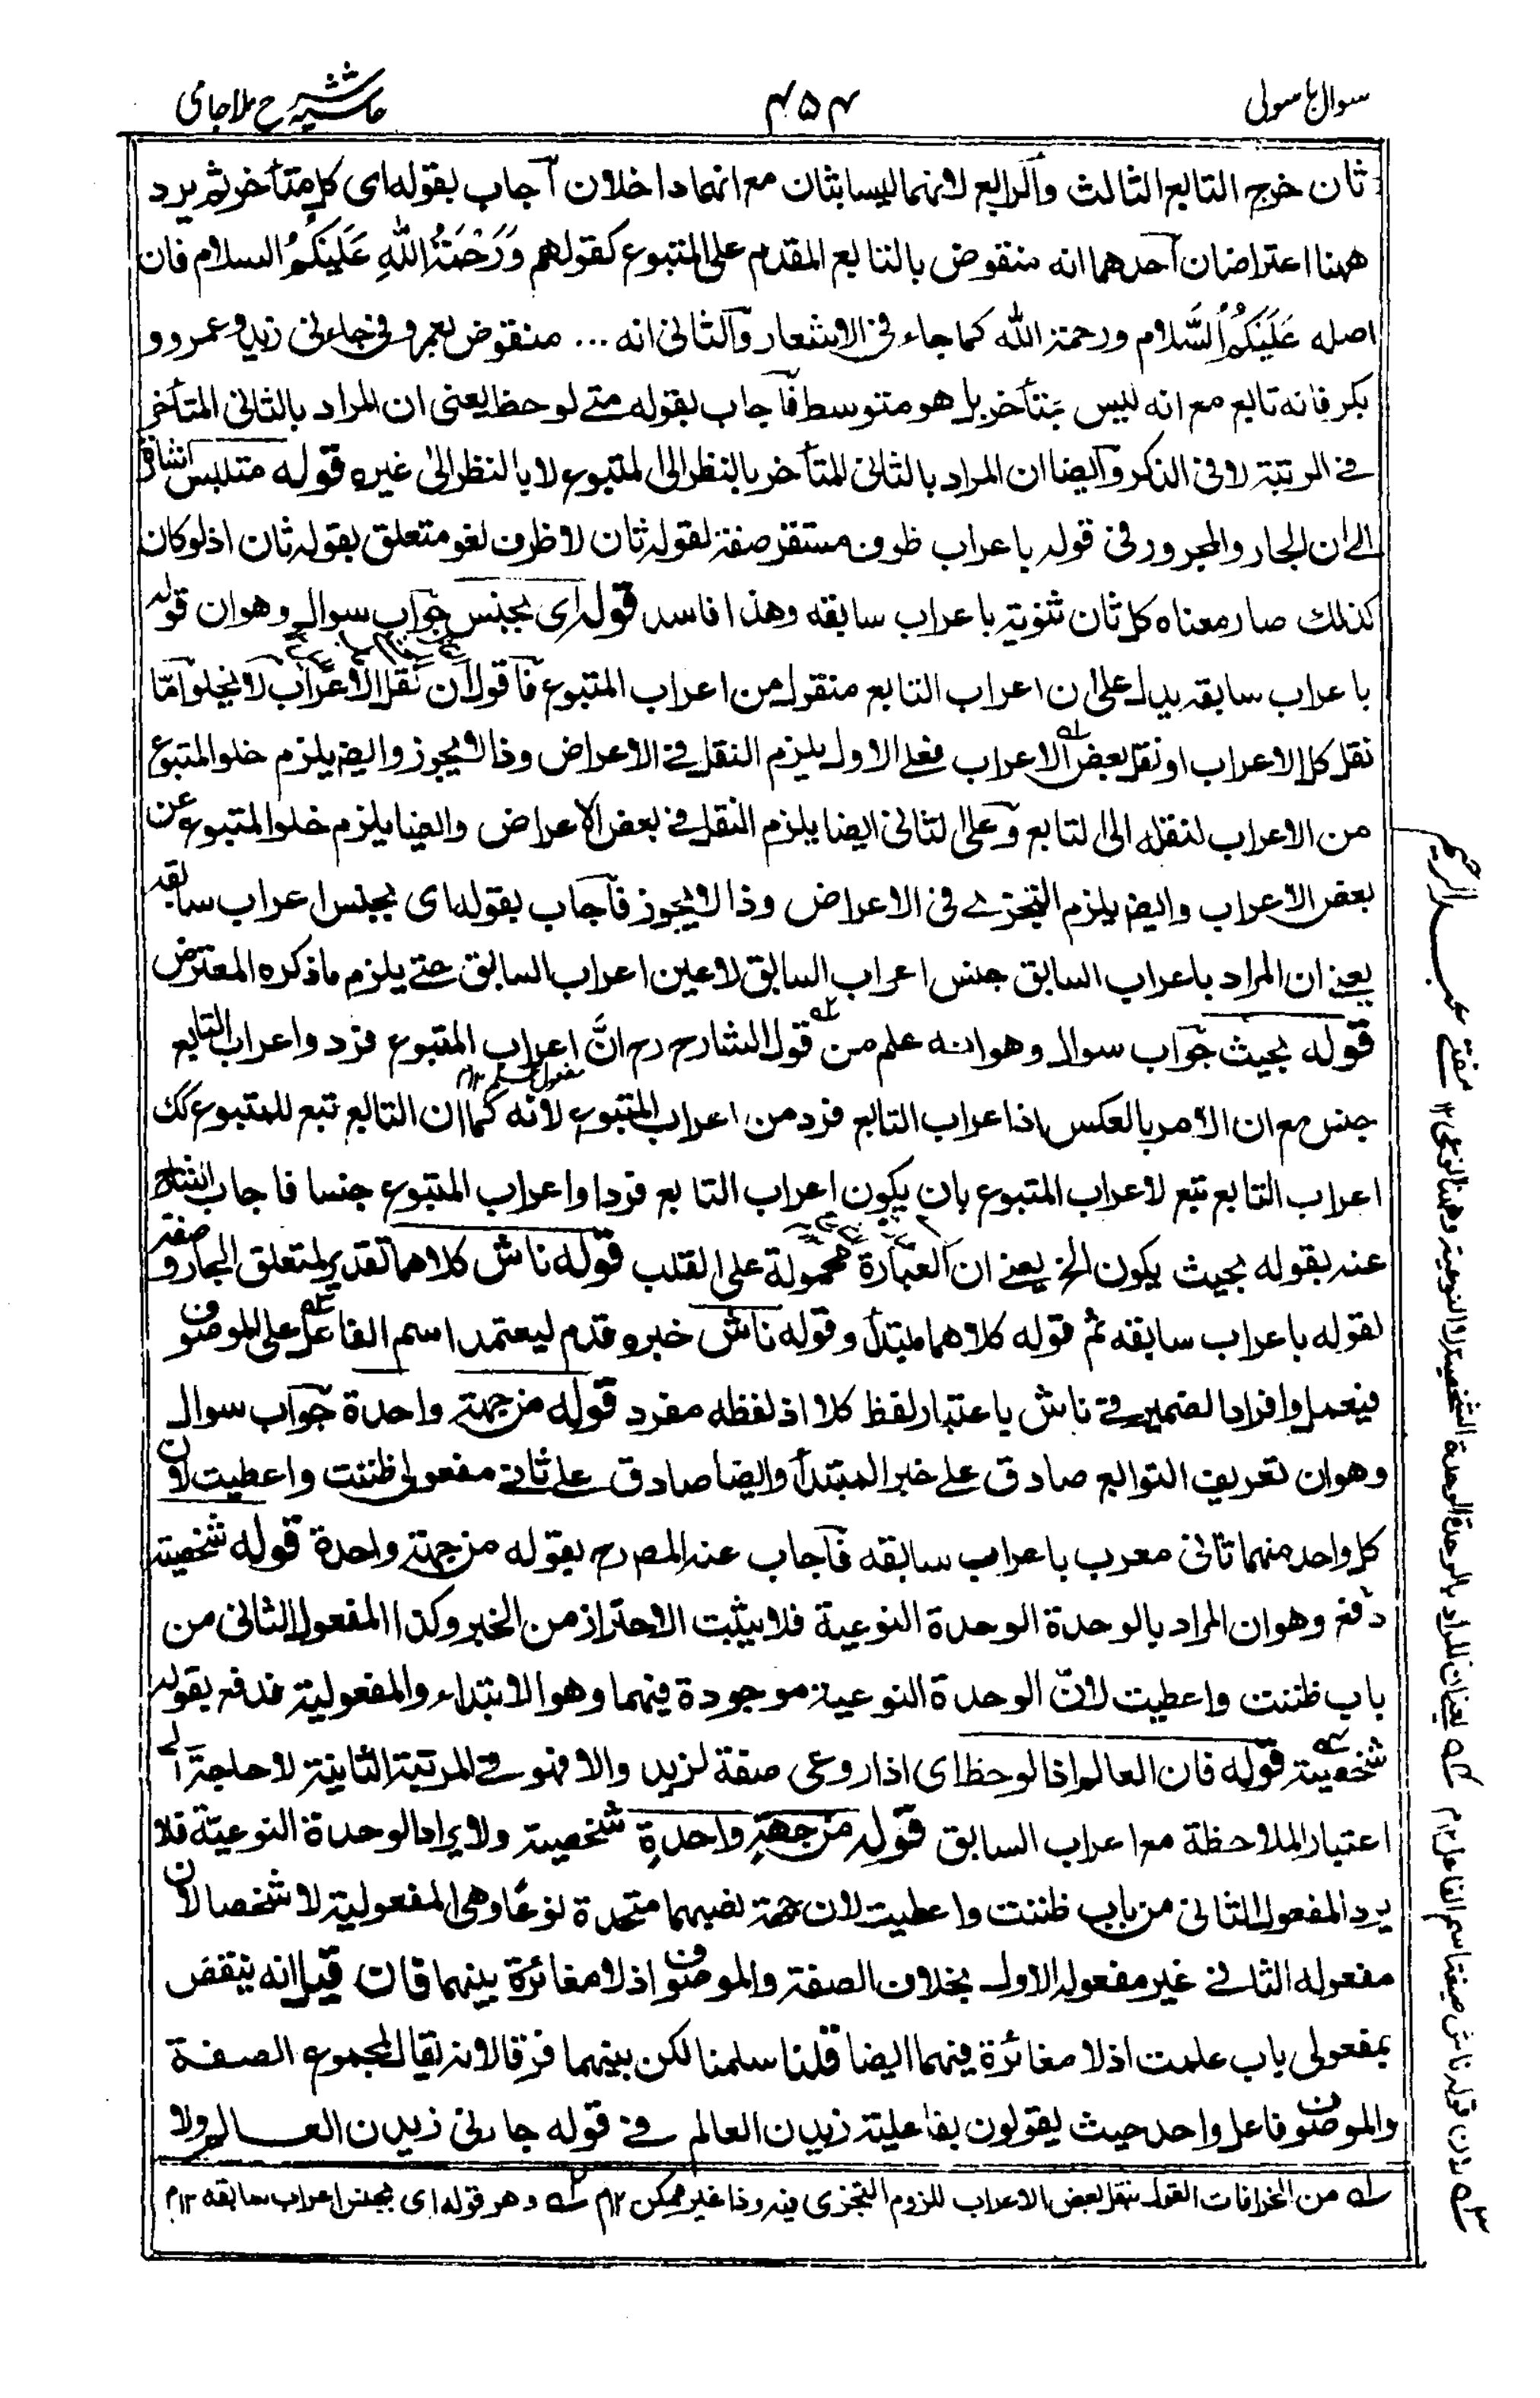 سوال باسولی
۴۵۴
حاشیہ شرح ملا جامی
ثان خرج التابع الثالث والرابع لانهما ليسا بثان مع انهما داخلان اجاب بقوله اى كل متأخر ثم يرد
ههنا اعتراضان احدهما انه منقوض بالتابع المقدم على المتبوع كقولهم وَرَحْمَةُ اللهِ عَلَيْكُمُ السلام فان
اصله عَلَيْكُمُ السَّلام ورحمة الله كما جاء فى الاشعار والثانى انه ... منقوض بعمرو فى جاءنى زيد وعمرو و
بكر فانه تابع مع انه ليس بمتأخر بل هو متوسط فاجاب بقوله متے لوحظ يعنى ان المراد بالثانى المتأخر
فے الرتبة لا فى الذكر وايضا ان المراد بالثانى المتأخر بالنظر الى المتبوع لا بالنظر الى غيره قوله متلبس اشارة
الى ان الجار والمجرور فى قوله باعراب ظرف مستقر صفة لقوله ثان لا ظرف لغو متعلق بقوله ثان اذ لو كان
كذلك صار معناه كل ثان ثنوية باعراب سابقه وهذا فاسد قوله اى بجنس جواب سوال وهو ان قوله
باعراب سابقه يدل على ان اعراب التابع منقول من اعراب المتبوع فاقول ان نقل الاعراب لا يخلو امّا
نقل كل الاعراب او نقل بعض الاعراب فعلى الاول يلزم النقل فے الاعراض وذا لا يجوز وايضا يلزم خلو المتبوع
من الاعراب لنقله الى التابع وعلى الثانى ايضا يلزم النقل فے بعض الاعراض وايضا يلزم خلو المتبوع عن
بعض الاعراب وايضا يلزم التجزے فى الاعراض وذا لا يجوز فاجاب بقوله اى بجنس اعراب سابقه
يعنے ان المراد باعراب السابق جنس اعراب السابق لا عين اعراب السابق حتے يلزم ما ذكره المعترض
قوله بحيث جواب سوال وهو انه علم من قول الشارح رح انَّ اعراب المتبوع فرد واعراب التابع
جنس مع ان الامر بالعكس اذ اعراب التابع فرد من اعراب المتبوع لانه كما ان التابع تبع للمتبوع كك
اعراب التابع تبع لاعراب المتبوع بان يكون اعراب التابع فردا واعراب المتبوع جنسا فاجاب الشارح
عنه بقوله بحيث يكون الخ يعنے ان العبارة محمولة على القلب قوله ناش كلاهما تقدير لمتعلق الجار و صفة
لقوله باعراب سابقه ثم قوله كلاهما مبتدأ وقوله ناش خبره قدم ليعتمد اسم الفاعل على الموصوف
فيعمل وافراد الضمير فے ناش باعتبار لفظ كلا اذ لفظه مفرد قوله من جهة واحدة جواب سوال
وهو ان تعريف التوابع صادق على خبر المبتدأ وايضا صادق على ثانے مفعولى ظننت واعطيت لان
كل واحد منهما ثانى معرب باعراب سابقه فاجاب عنه المصرح بقوله من جهة واحدة قوله شخصية
دفع وهو ان المراد بالوحدة الوحدة النوعية فلا يثبت الاحتراز من الخبر وكذا المفعول الثانى من
باب ظننت واعطيت لانّ الوحدة النوعية موجودة فيهما وهو الابتداء والمفعولية فدفع بقوله
شخصية قوله فان العالم اذا لوحظ اى اذا روعى صفة لزيد والا فهو فے المرتبة الثانية لا حاجة الے
اعتبار الملاحظة مع اعراب السابق قوله من جهةٍ واحدةٍ شخصية ولا يراد الوحدة النوعيّة فلا
يرد المفعول الثانى من باب ظننت واعطيت لان جهة نصبهما متحدة نوعًا وهى المفعولية لا شخصا لان
مفعوله الثانے غير مفعوله الاول بخلاف الصفة والموصوف اذ لا مغائرة بينهما فان قيل انه ينتقض
بمفعولى باب علمت اذ لا مغائرة فيهما ايضا قلنا سلمنا لكن بينهما فرقا لانه يقال لمجموع الصفة
والموصوف فاعل واحد حيث يقولون بفاعلية زيدن العالم فے قوله جاءنى زيدن العالم ولا
لہ من الخرافات القول بنقل بعض الاعراب للزوم التجزى فيه وذا غير ممكن ۱۲م ٢ہ وهو قوله اى بجنس اعراب سابقه ۱۲م
مفعول علم ۱۲م
٣ہ لان قوله ناش صيغة اسم الفاعل ۱۲م ٤ہ يعنى ان المراد بالوحدة الوحدة الشخصية لا النوعية وههنا نوعى ۱۲